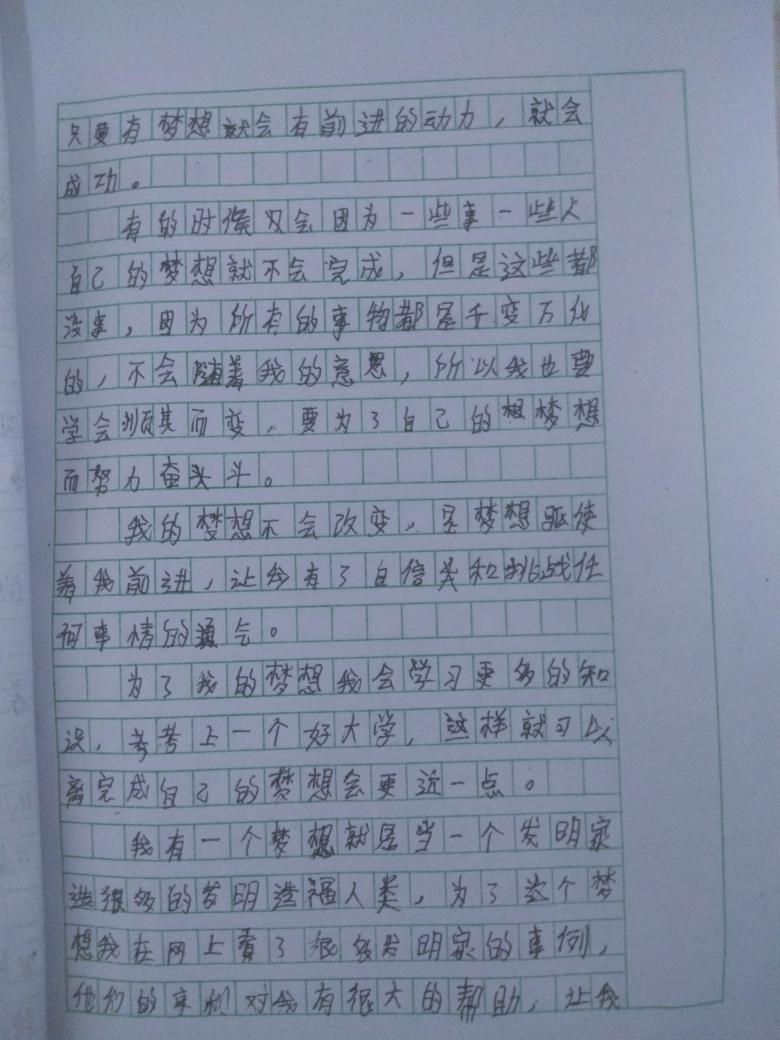 只要有梦想就会有前进的动力，就会
成功。
有的时候又会因为一些事一些人
自己的梦想就不会完成，但是这些都
没事，因为所有的事物都是千变万化
的，不会随着我的意思，所以我也要
学会顺其而变，要为了自己的想梦想
而努力奋头斗。
我的梦想不会改变，是梦想驱使
着我前进，让我有了自信and和挑战任
何事情的会。
为了我的梦想我会学习更多的知
识，考考上一个好大学，这样就可以
离完成自己的梦想会更近一点。
我有一个梦想就是当一个发明家
造很多的发明造福人类，为了这个梦
想我在网上看了很多发明家的事例，
他们的事例对我有很大的帮助，让我